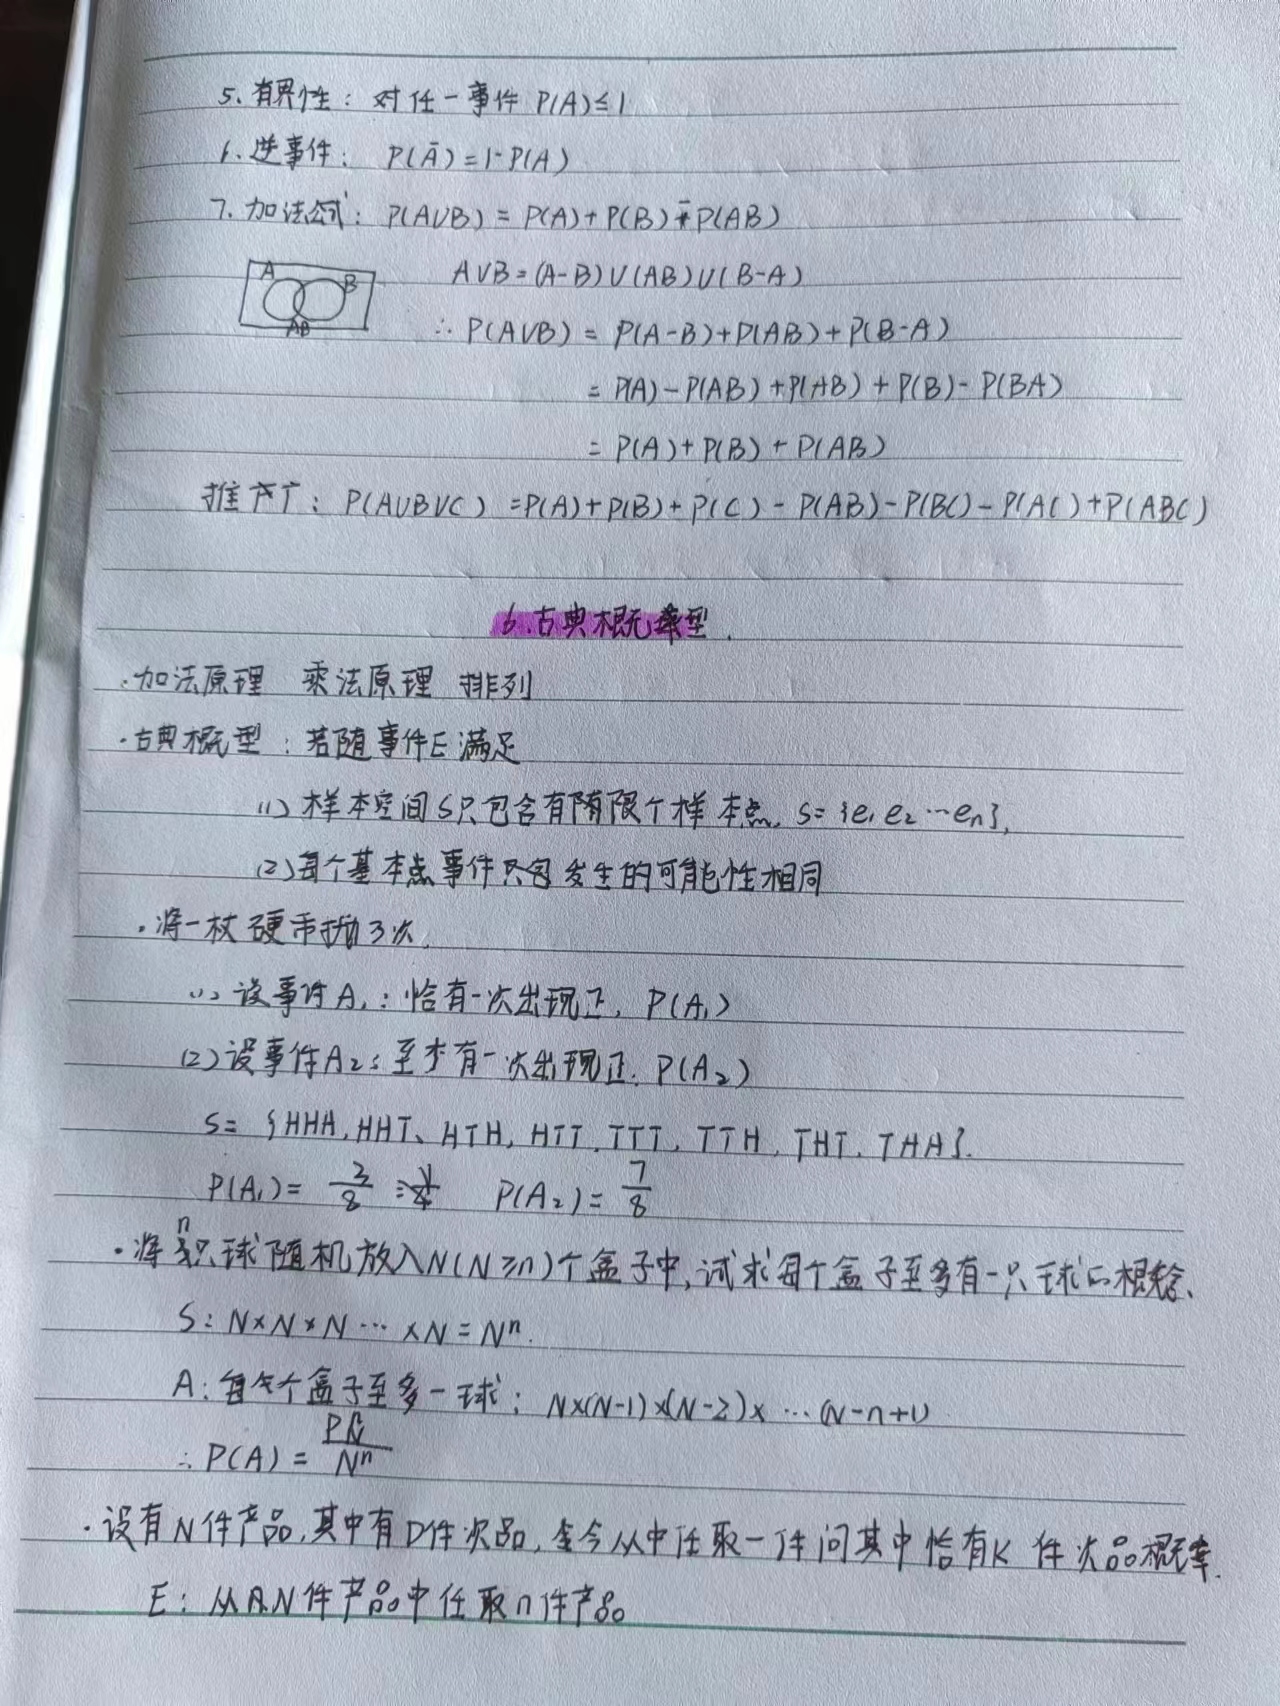 5、有界性：对任一事件 P(A)≤1
6、逆事件： P(Ā)=1-P(A)
7、加法公式：P(A∪B) = P(A)+P(B)-P(AB)
A B AB
A∪B=(A-B)∪(AB)∪(B-A)
∴ P(A∪B) = P(A-B)+P(AB)+P(B-A)
= P(A)-P(AB)+P(AB)+P(B)-P(BA)
= P(A)+P(B)+P(AB)
推广：P(A∪B∪C) =P(A)+P(B)+P(C)-P(AB)-P(BC)-P(AC)+P(ABC)
6.古典概率型.
·加法原理 乘法原理 排列
·古典概型：若随事件E满足
(1) 样本空间S只包含有限个样本点, S={e₁ e₂ …eₙ},
(2)每个基本点事件发生的可能性相同
·将一枚硬币抛3次,
(1) 设事件A₁：恰有一次出现正, P(A₁)
(2)设事件A₂：至少有一次出现正. P(A₂)
S= {HHH,HHT、HTH,HTT,TTT,TTH,THT,THH}.
P(A₁)= 3/8 P(A₂)= 7/8
·将n只球随机放入N(N≥n)个盒子中,试求每个盒子至多有一只球的概念、
S：N×N×N … ×N = Nⁿ.
A：每个盒子至多一球：N×(N-1)×(N-2)× …(N-n+1)
∴ P(A) = Pₙᴺ/Nⁿ
·设有N件产品,其中有D件次品,今从中任取一件问其中恰有K 件次品概率.
E：从N件产品中任取n件产品